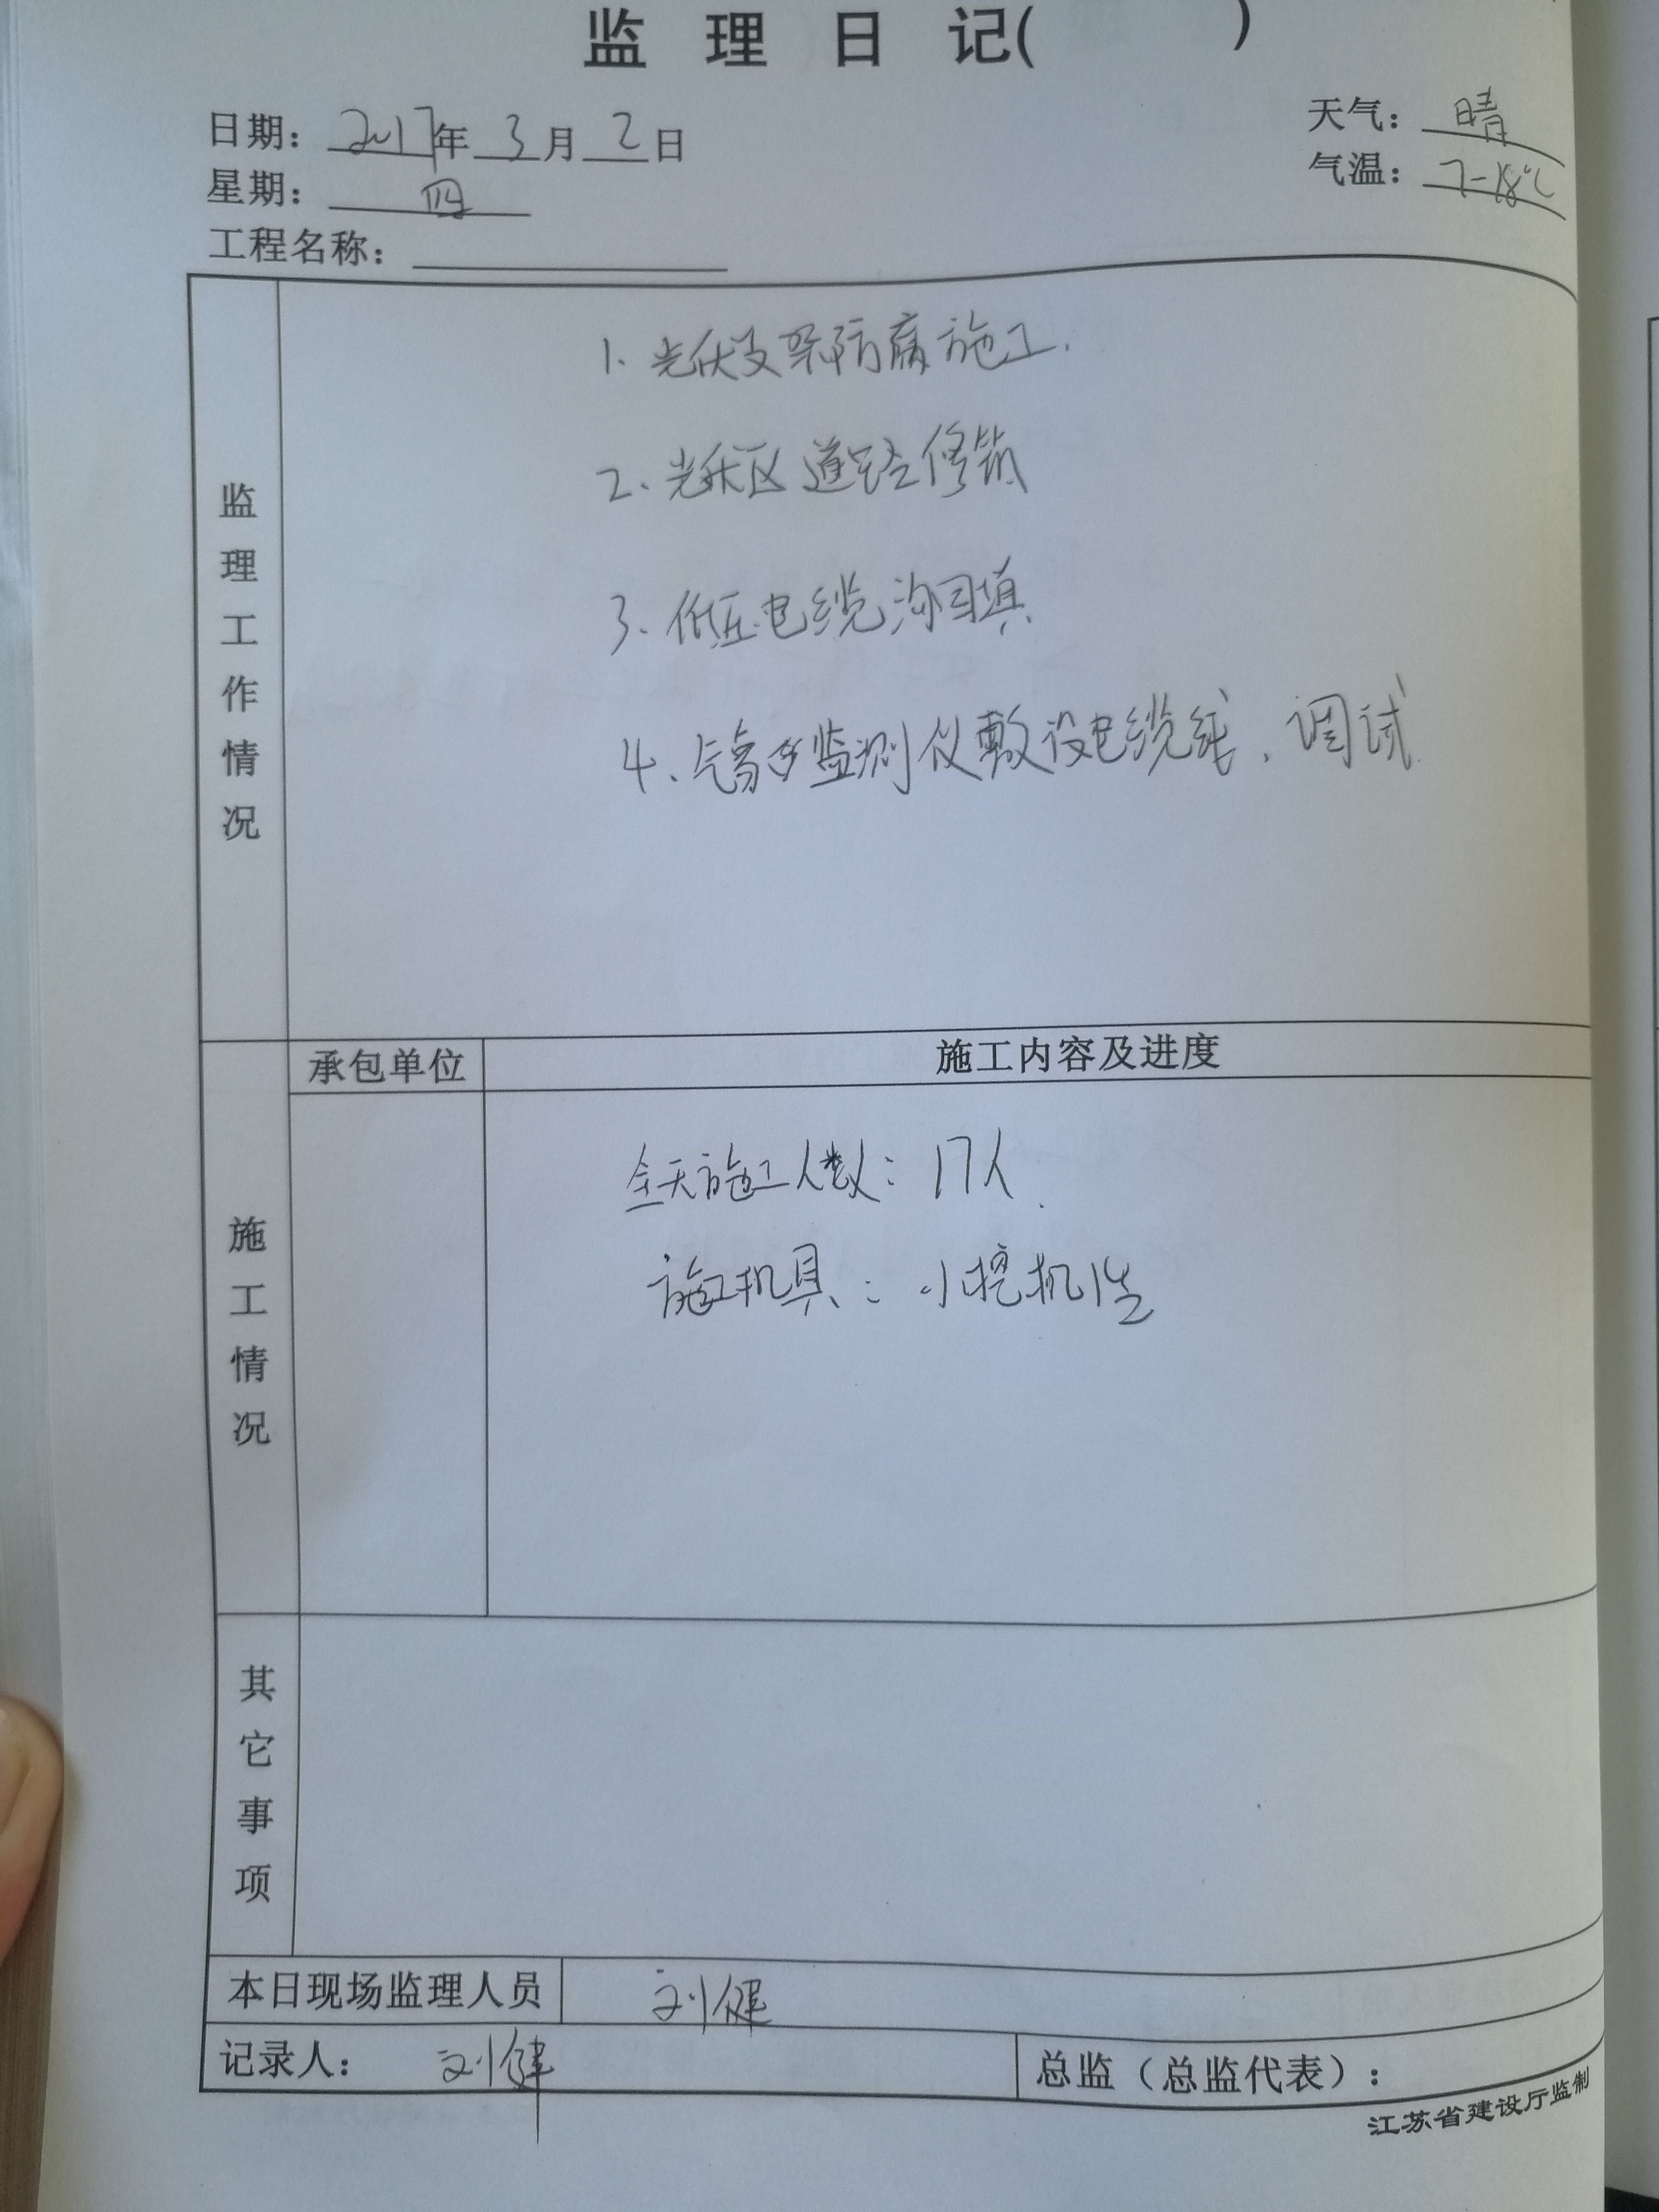 监 理 日 记( )
日期：2017年 3月 2日
天气：晴
星期：四
气温：7-18℃
工程名称：
监理工作情况
1. 光伏支架防腐施工.
2. 光伏区道路修筑
3. 低压电缆沟回填
4. 气象站监测仪敷设电缆线、调试.
施工情况
承包单位
施工内容及进度
全天施工人数：17人.
施工机具：小挖机1
其它事项
本日现场监理人员 刘健
记录人：刘健
总监（总监代表）：
江苏省建设厅监制